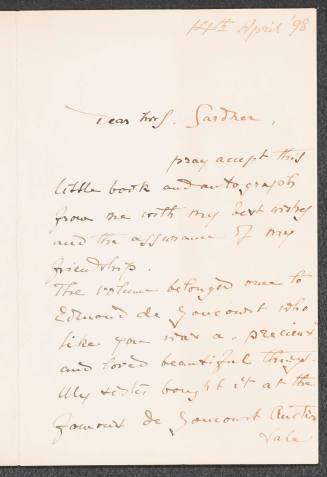 14th April '98
Dear Mrs. Gardner,
pray accept this
little book and autograph
from me with my best wishes
and the assurance of my
friendship.
The volume belonged once to
Edmond de Goncourt who
like you was a "precieux"
and loved beautiful things.
My sister bought it at the
famous de Goncourt Auction
Sale